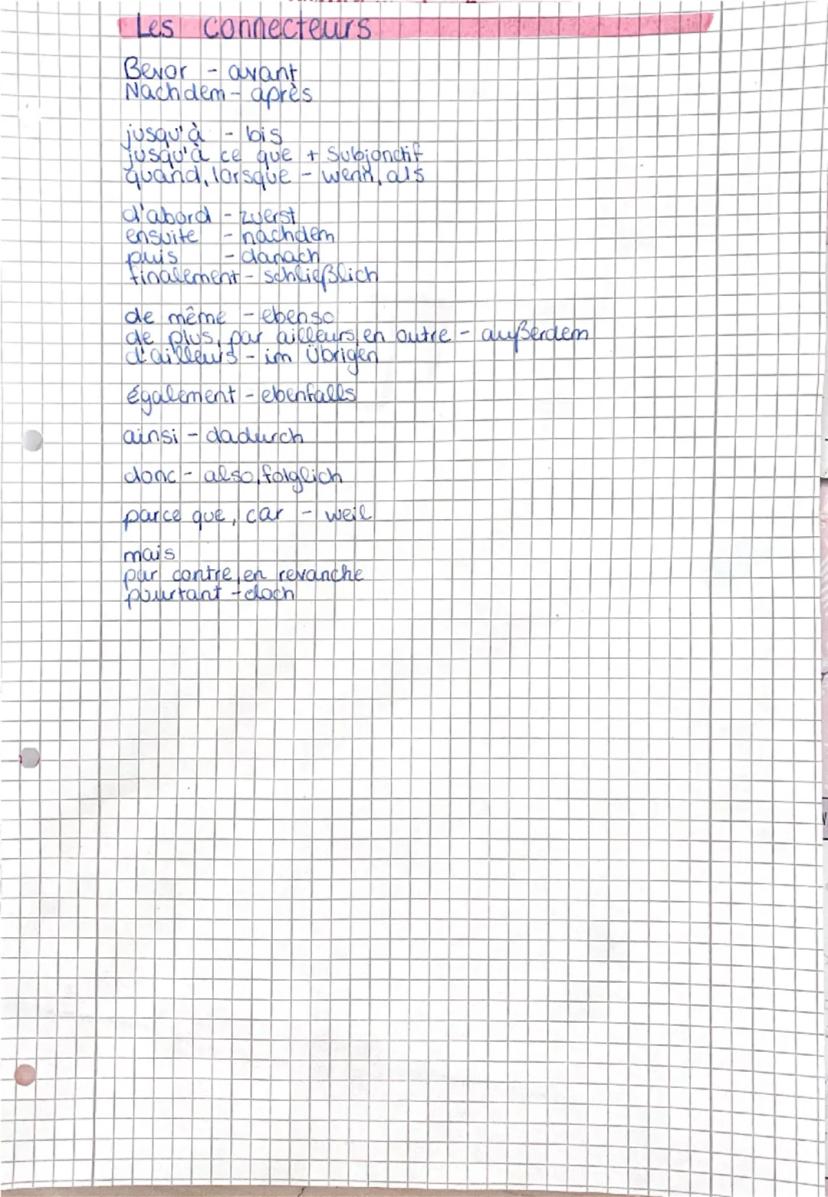 Les connecteurs
Bevor - avant
Nachdem - après
jusqu'à - bis
jusqu'à ce que + Subjonctif
quand, lorsque - wenn, als
d'abord - zuerst
ensuite - nachdem
puis - danach
finalement - schließlich
de même - ebenso
de plus, par ailleurs, en outre - außerdem
d'ailleurs - im Übrigen
également - ebenfalls
ainsi - dadurch
donc - also, folglich
parce que, car - weil
mais
par contre, en revanche
pourtant - doch